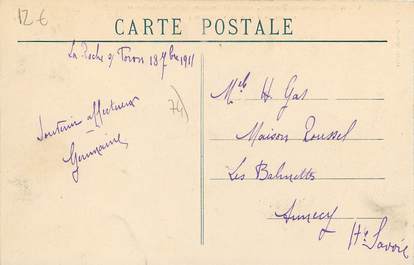 12 €
CARTE POSTALE
La Roche s/ Foron 18 7bre 1911
Souvenir affectueux
Germaine
74)
Mlle H Gas
Maison Roussel
Les Balmettes
Annecy
Hte Savoie